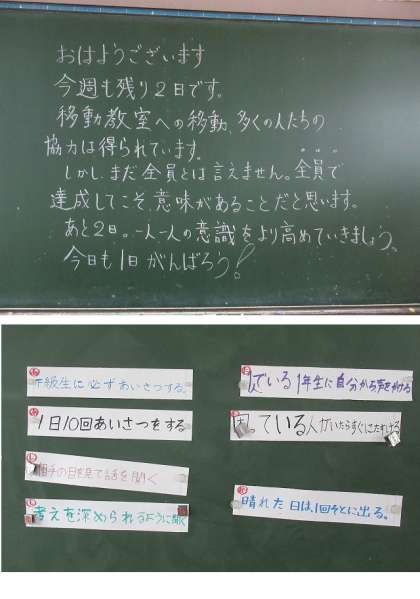 おはようございます
今週も残り2日です。
移動教室への移動、多くの人たちの
協力は得られています。
しかし、まだ全員とは言えません。全員で
達成してこそ、意味があることだと思います。
あと2日。一人一人の意識をより高めていきましょう。
今日も1日がんばろう!
下級生に必ずあいさつする。
1日10回あいさつをする
相手の目を見て話を聞く
考えを深められるように聞く
でいる1年生に自分から声をかける
困っている人がいたらすぐにたすける
晴れた日は、1回そとに出る。